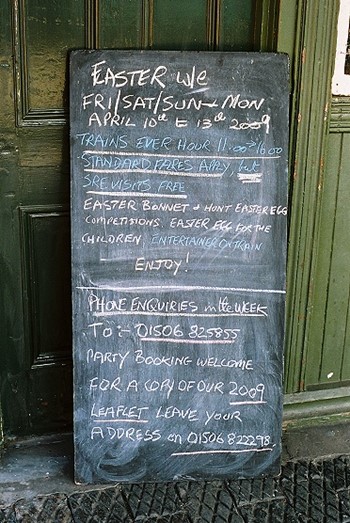 EASTER w/e
FRI/SAT/SUN + MON
APRIL 10th to 13th 2009
TRAINS EVER HOUR 11.00 16.00
STANDARD FARES APPLY, but
SRE VISITS FREE
EASTER BONNET + HUNT EASTER EGG
COMPETITIONS. EASTER EGG FOR THE
CHILDREN, ENTERTAINER ON TRAIN
ENJOY!
PHONE ENQUIRIES in the WEEK
TO:- 01506 825855
PARTY BOOKING WELCOME
FOR A COPY OF OUR 2009
LEAFLET LEAVE YOUR
ADDRESS on 01506 822298.